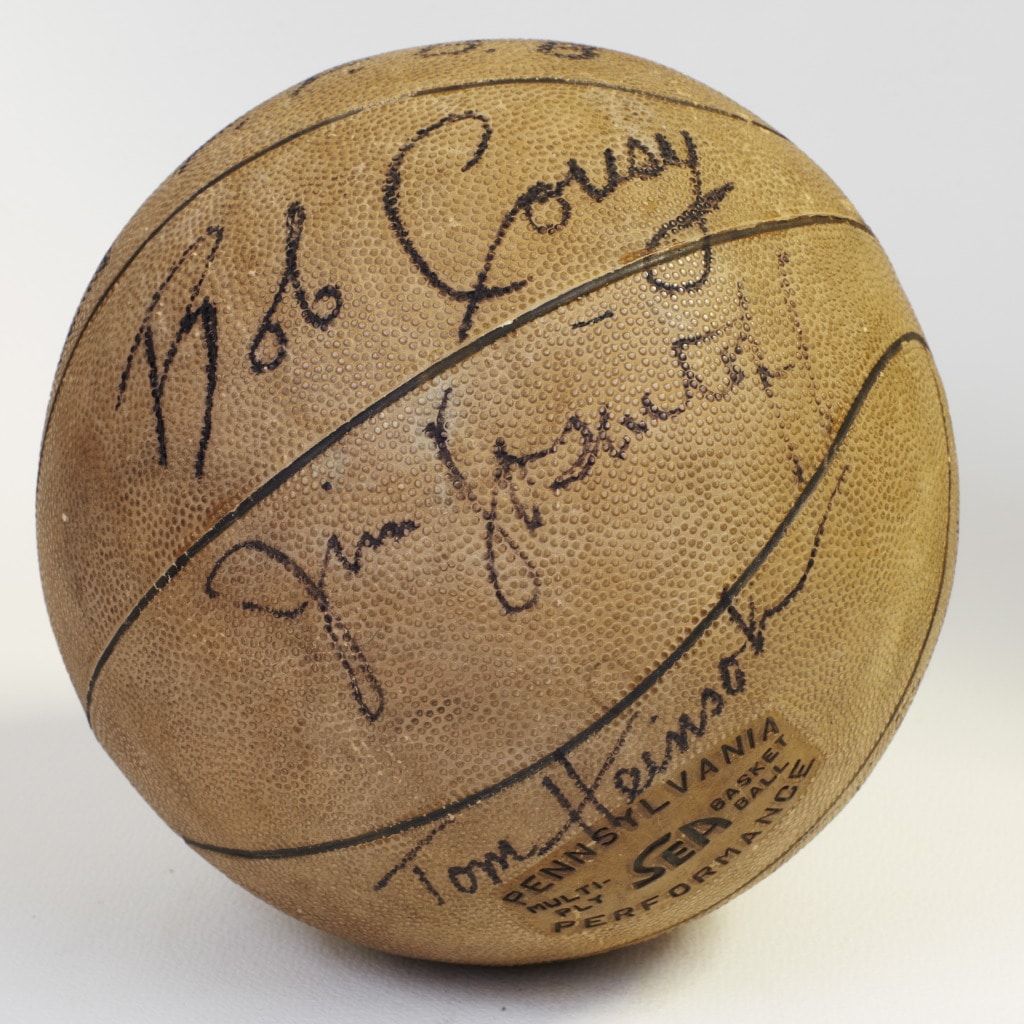 Bob Cousy
Jim Loscutoff
Tom Heinsohn
PENNSYLVANIA
MULTI-PLY SEA BASKET BALL
PERFORMANCE